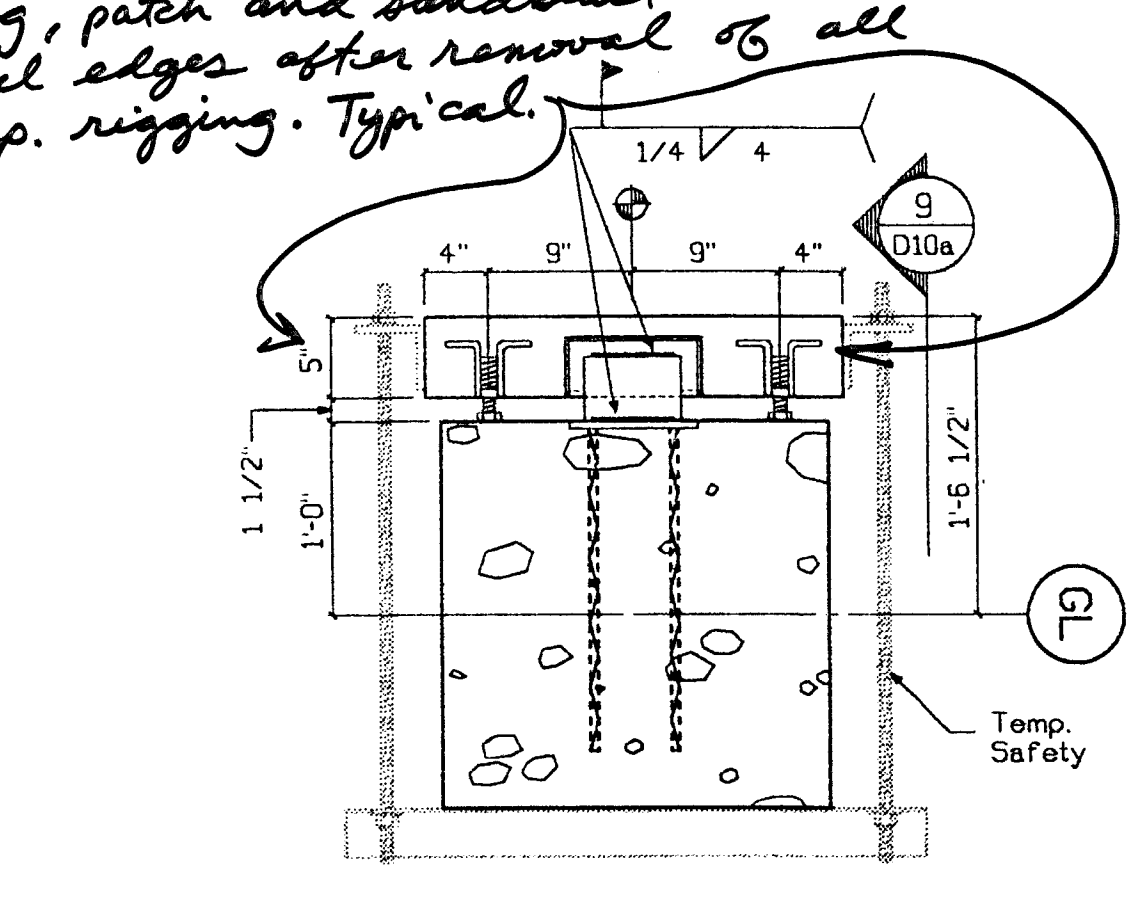 , patch and
edges after removal of all
rigging. Typical.
1/4 4
9
D10a
4" 9" 9" 4"
5"
1 1/2"
1'-0"
1'-6 1/2"
GL
Temp.
Safety